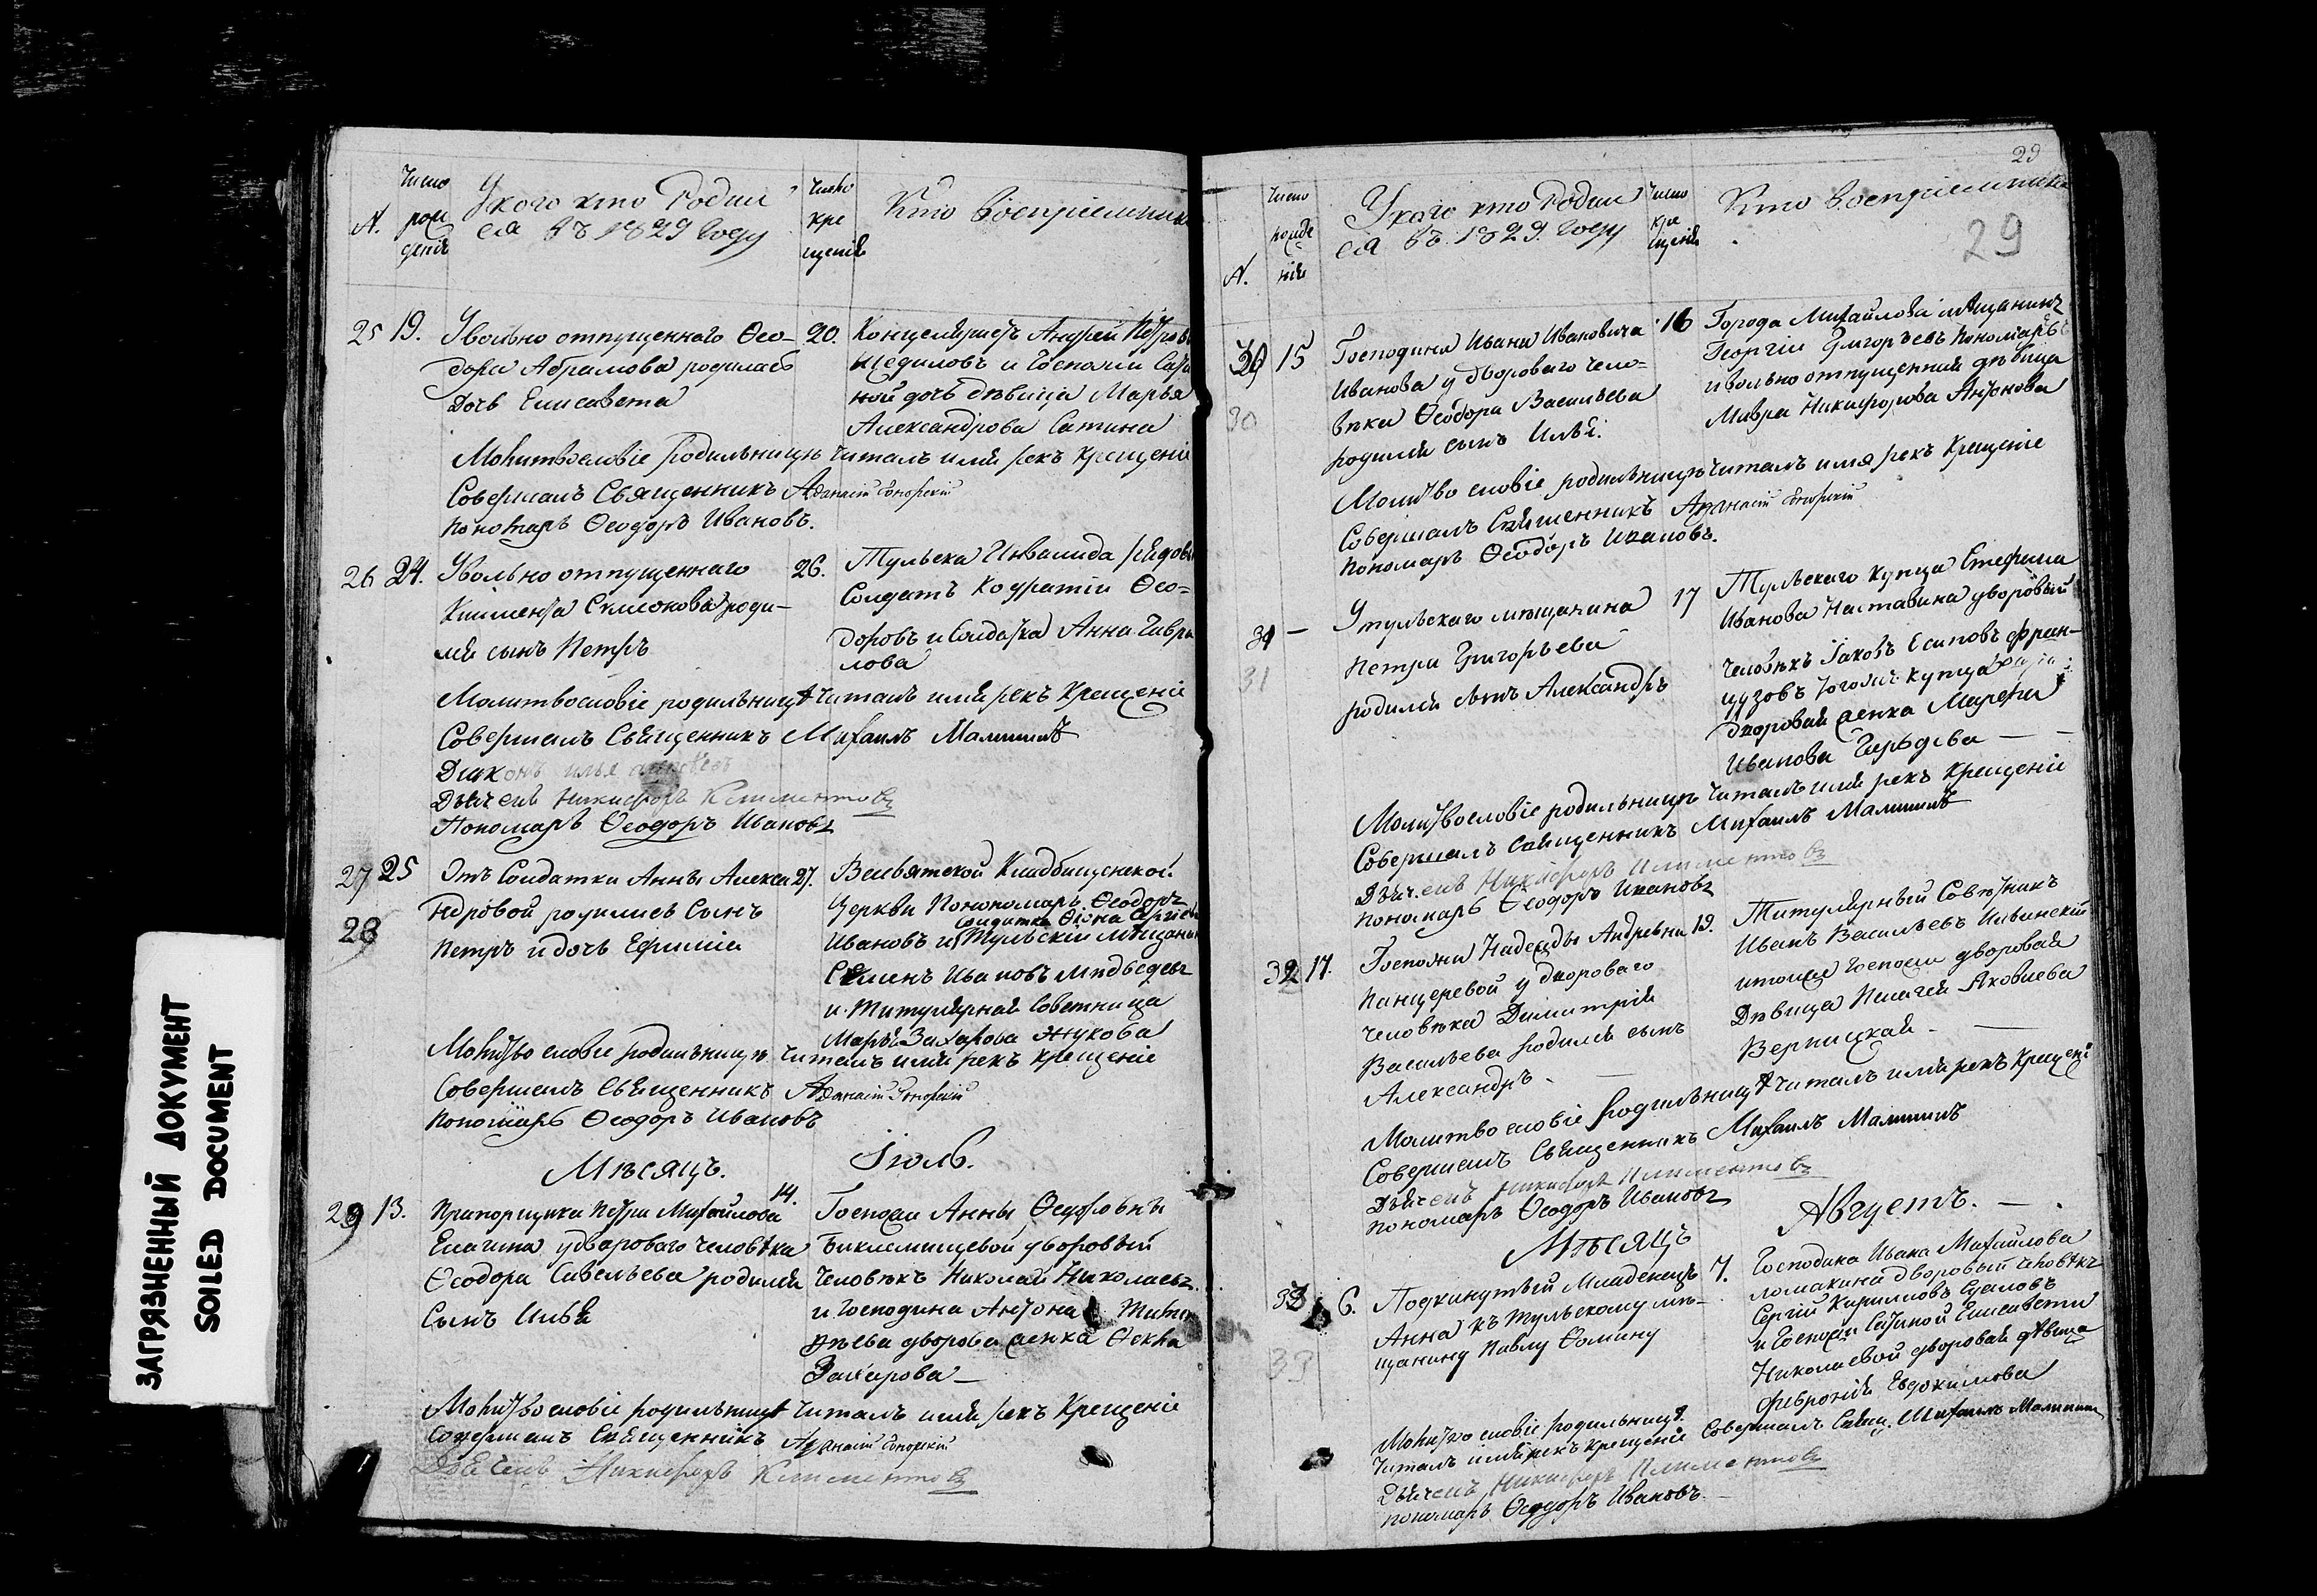 ЗАГРЯЗНЕННЫЙ ДОКУМЕНТ
SOILED DOCUMENT
N.
Число рож денія
У кого кто Родил
ся въ 1829 году
Число кре щенія
Кто воспріемник
25 19. У вольно отпущеннаго Ѳео-
дора Абрамова родилась
дочь Елисавета
20. Концеляристъ Андрей Петров
и Госпожи Сати
ной дочь дѣвица Марья
Александрова Сатина
Молитвословіе родильницѣ читалъ имя рекъ крещеніе
Совершалъ Священникъ Афанасій
Пономарь Ѳеодоръ Ивановъ.
26 24. У вольно отпущеннаго
Климента Симонова роди-
лся сынъ Петръ
26. Тульска Инвалида рядов
Солдатъ Кодратій Ѳео=
доровъ и Солдатка Анна Гаври
лова
Молитвословіе родильницѣ читалъ имя рекъ Крещеніе
Совершалъ Священникъ Михаилъ Малининъ
Діаконъ Илья
Дьячекъ Никифоръ Климентовъ
Пономарь Ѳеодоръ Ивановъ
27 25
28
Отъ Солдатки Анны Алекса
ндровой родились Сынъ
Петръ и дочь Ефимія
27. Всесвятской Кладбищенской
Церкви Пономарь Ѳеодоръ
Солдатка
Ивановъ и Тульскій мѣщанин
Семенъ Ивановъ Медведевъ
и Титулярная Советница
Марья Захарова Жукова
Молитвословіе родильницѣ читалъ имя рекъ крещеніе
Совершалъ Священникъ Афанасій
Пономарь Ѳеодоръ Ивановъ
Мѣсяцъ. Іюль.
29 13. Прапорщика Петра Михайлова
Елагина у двароваго человѣка
Ѳеодора Савельева родился
Сынъ Илья
14. Госпожи Анны Ѳедоровны
дворовый
человѣкъ Николай Николаевъ
и Господина Антона
дворова женка Ѳекла
Захарова
Молитвословіе родильницѣ читалъ имя рекъ Крещеніе
Совершалъ Священникъ Афанасій
Дьячекъ Никифоръ Климентовъ
29
29
N.
Число рожде нія
У каго кто Родил
ся въ 1829. году
Число кре щенія
Кто воспріемники
30 15
30
Господина Ивана Ивановича
Иванова у двороваго чело=
вѣка Ѳеодора Васильева
родился сынъ Илья.
16 Города Михайлова мѣщанинъ
Георгій Григорьевъ Пономаревъ
и вольно отпущенная дѣвица
Мавра Никифорова Антонова
Молитвословіе родильницѣ читалъ имя рекъ Крещеніе
Совершалъ Священникъ Афанасій
Пономарь Ѳеодоръ Ивановъ.
31 —
31
У тульскаго мѣщанина
Петра Григорьева
родился сынъ Александръ
17 Тульскаго купца Стефана
Иванова дворовый
человѣкъ Іаковъ Есиповъ Фран-
цузовъ купца
дворовая женка Марфа
Иванова
Молитвословіе родильницѣ читалъ имя рекъ Крещеніе
Совершалъ Священникъ Михаилъ Малининъ
Дьячекъ Никифоръ Климентовъ
Пономарь Ѳеодоръ Ивановъ
32 17. Госпожи Надежды Андревны
Панцеревой у двороваго
человѣка Димитрія
Васильева родился сынъ
Александръ.
19. Титулярный Совѣтникъ
Иванъ Васильевъ
и тоже Госпожи дворовая
Дѣвица Пелагея Яковлева
Молитвословіе родильницѣ читалъ имя рекъ Крещені
Совершалъ Священникъ Михаилъ Малининъ
Дьячекъ Никифоръ Климентовъ
Пономарь Ѳеодоръ Ивановъ
Мѣсяцъ Августъ.
33 6.
33
Подкинутый Младенецъ
Анна къ тульскому мѣ-
щанину Павлу Ѳомину
7. Господина Ивана Михайлова
Ломакина дворовый человѣкъ
Сергій Кириловъ
и Госпожи Сатиной Елисаветы
Николаевой дворовая дѣвица
Феврония Евдокимова
Молитвословіе родильницѣ
читалъ имя рекъ крещеніе Совершалъ Свящ. Михаилъ Малининъ
Дьячекъ Никифоръ Климентовъ
Пономарь Ѳеодоръ Ивановъ